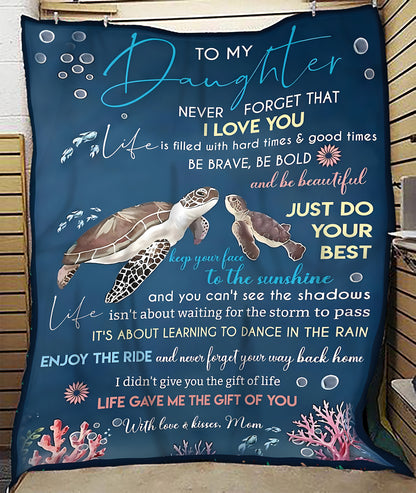 TO MY
Daughter
NEVER FORGET THAT
I LOVE YOU
Life is filled with hard times & good times
BE BRAVE, BE BOLD
and be beautiful
JUST DO
YOUR
BEST
keep your face
to the sunshine
and you can't see the shadows
Life isn't about waiting for the storm to pass
IT'S ABOUT LEARNING TO DANCE IN THE RAIN
ENJOY THE RIDE and never forget your way back home
I didn't give you the gift of life
LIFE GAVE ME THE GIFT OF YOU
With love & kisses, Mom